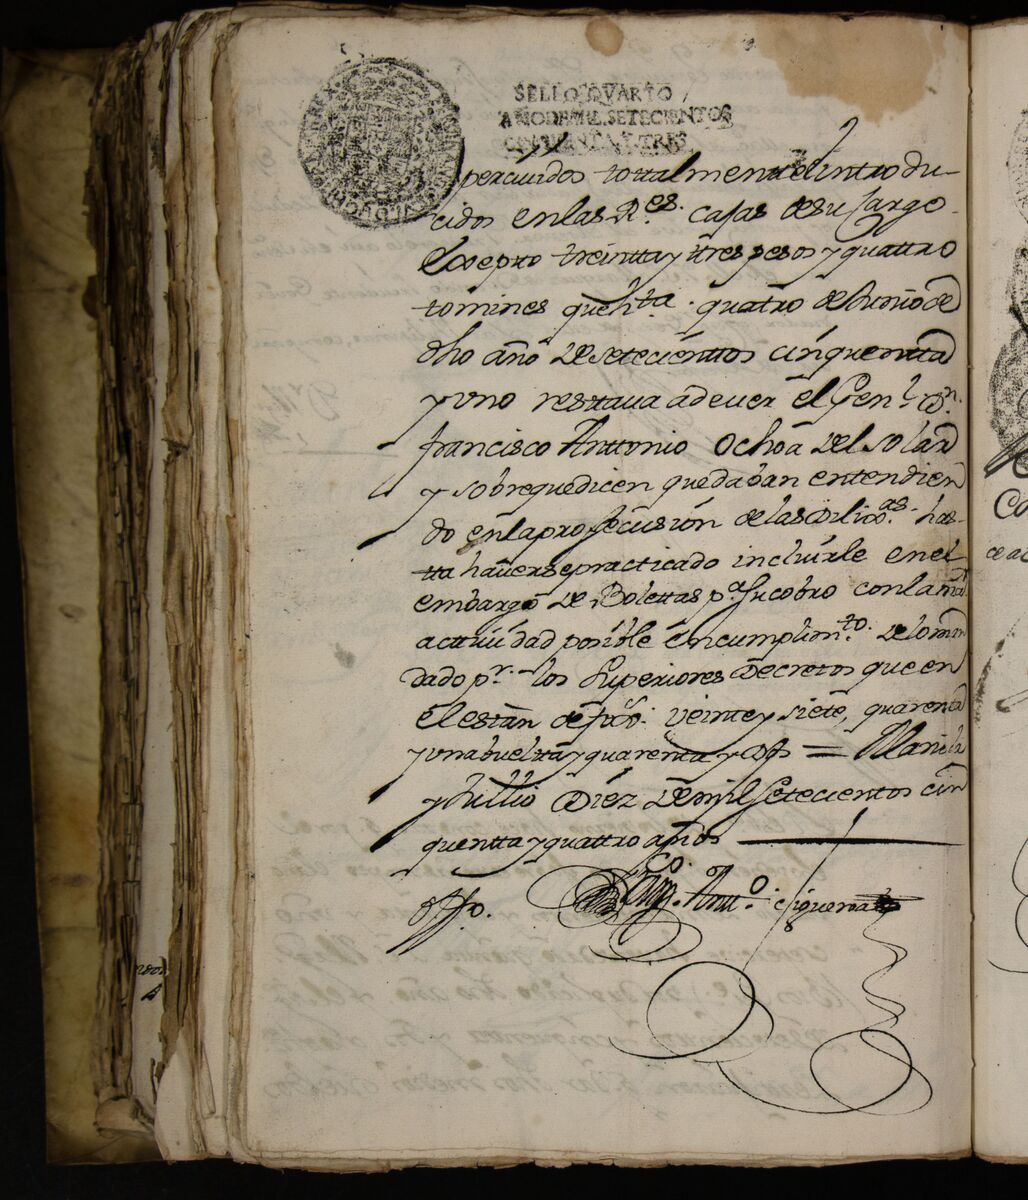 SELLO QVARTO
AÑO DE MIL SETECIENTOS
CINQUENTA Y TRES
percividos totalmente el introdu-
cidos en las R.es casas de su cargo.
Excepto treintta y tres pesos y quattro
tomines que h.ta quatro de Junio de
dho año de setecientos cinquentta
y uno restava a dever el Gen.l D.n
francisco Anttonio Ochoa del solar
y sobre que dicen quedaban entendien
do en la prosecusion de las Dilig.as has-
tta haverse practicado incluirle en el
embargo de Bolettas p.a su cobro con la
actividad posible en cumplim.to de lo man
dado p.r los Superiores Decretos que en
el estan de fxs. veinte y siete, quarenta
y una buelta y quarenta y dos = Manila
y Jullio Diez de mil Setecientos cin
quentta y quattro años
Ant.o